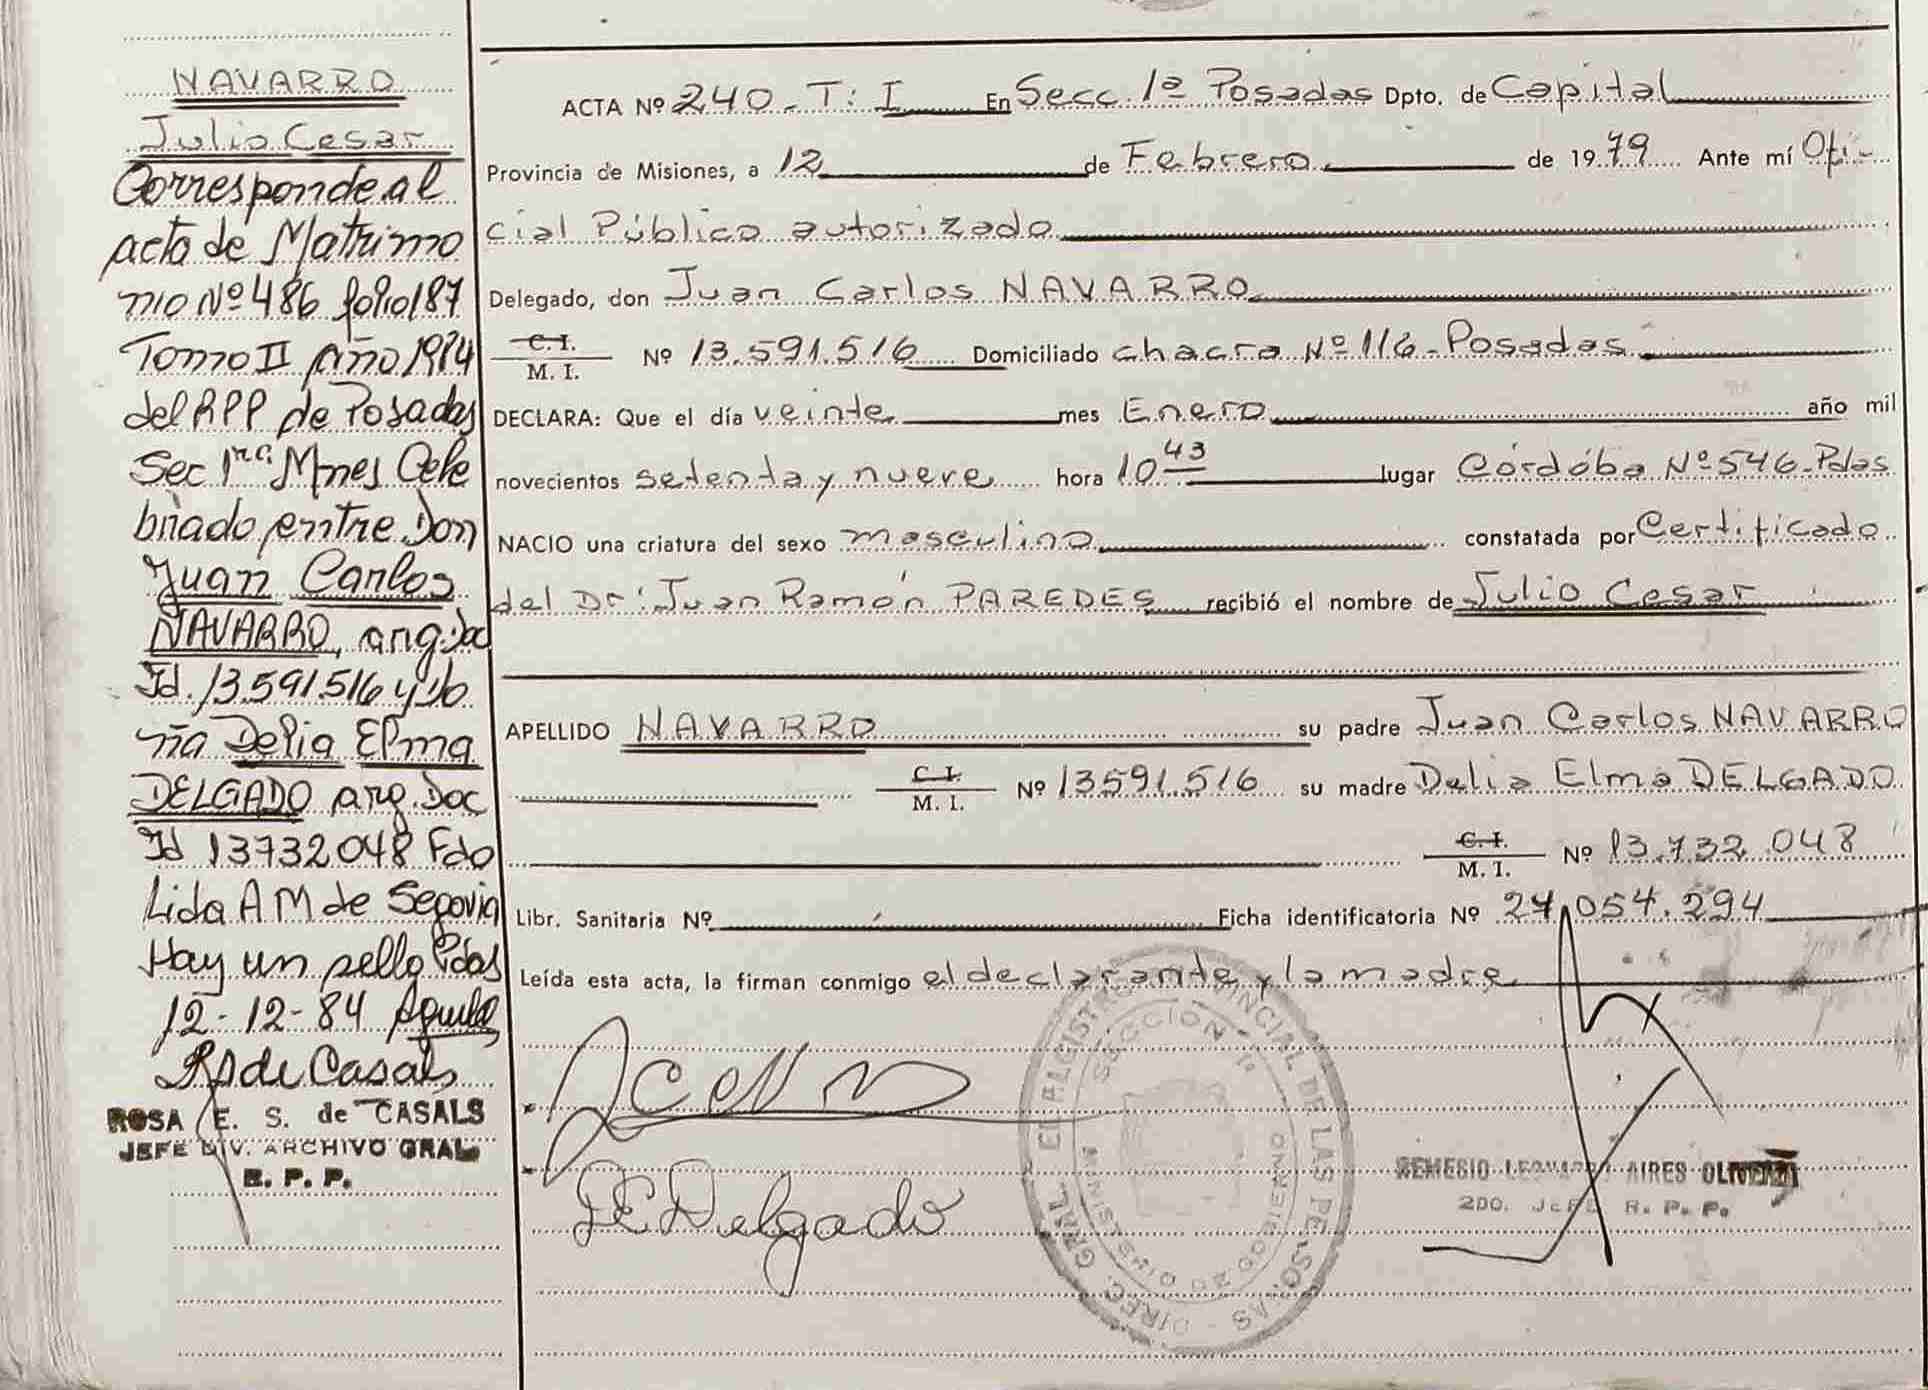 NAVARRO
Julio Cesar
Corresponde al
acta de Matrimo
nio Nº 486 folio 187
Tomo II año 1984
del RPP de Posadas
Sec 1ra. Mnes Cele
brado entre Don
Juan Carlos
NAVARRO, arg. Doc
Id. 13.591.516 y Do
ña Delia Elma
DELGADO arg. Doc
Id 13732048 Fdo
Lida A M de Segovia
Hay un sello Pdas
12-12-84
de Casals
ROSA E. S. de CASALS
JEFE DIV. ARCHIVO GRAL
R. P. P.
ACTA Nº 240 - T: I En Secc. 1ª Posadas Dpto. de Capital
Provincia de Misiones, a 12 de Febrero de 1979 Ante mí Ofi-
cial Público autorizado
Delegado, don Juan Carlos NAVARRO
C. I.
M. I. Nº 13.591.516 Domiciliado chacra Nº 116 - Posadas
DECLARA: Que el día veinte mes Enero año mil
novecientos setenta y nueve hora 10 43 lugar Córdoba Nº 546 - Pdas
NACIO una criatura del sexo masculino constatada por Certificado
del Dr: Juan Ramón PAREDES recibió el nombre de Julio Cesar
APELLIDO NAVARRO su padre Juan Carlos NAVARRO
C. I.
M. I. Nº 13.591.516 su madre Delia Elma DELGADO
C. I.
M. I. Nº 13.732.048
Libr. Sanitaria Nº Ficha identificatoria Nº 27.054.294
Leída esta acta, la firman conmigo el declarante y la madre
DE Delgado
DIREC. GRAL. DEL REGISTRO PROVINCIAL DE LAS PERSONAS
SECCION 1ª
MINISTERIO DE GOBIERNO
AIRES
2DO. JEFE R. P. P.